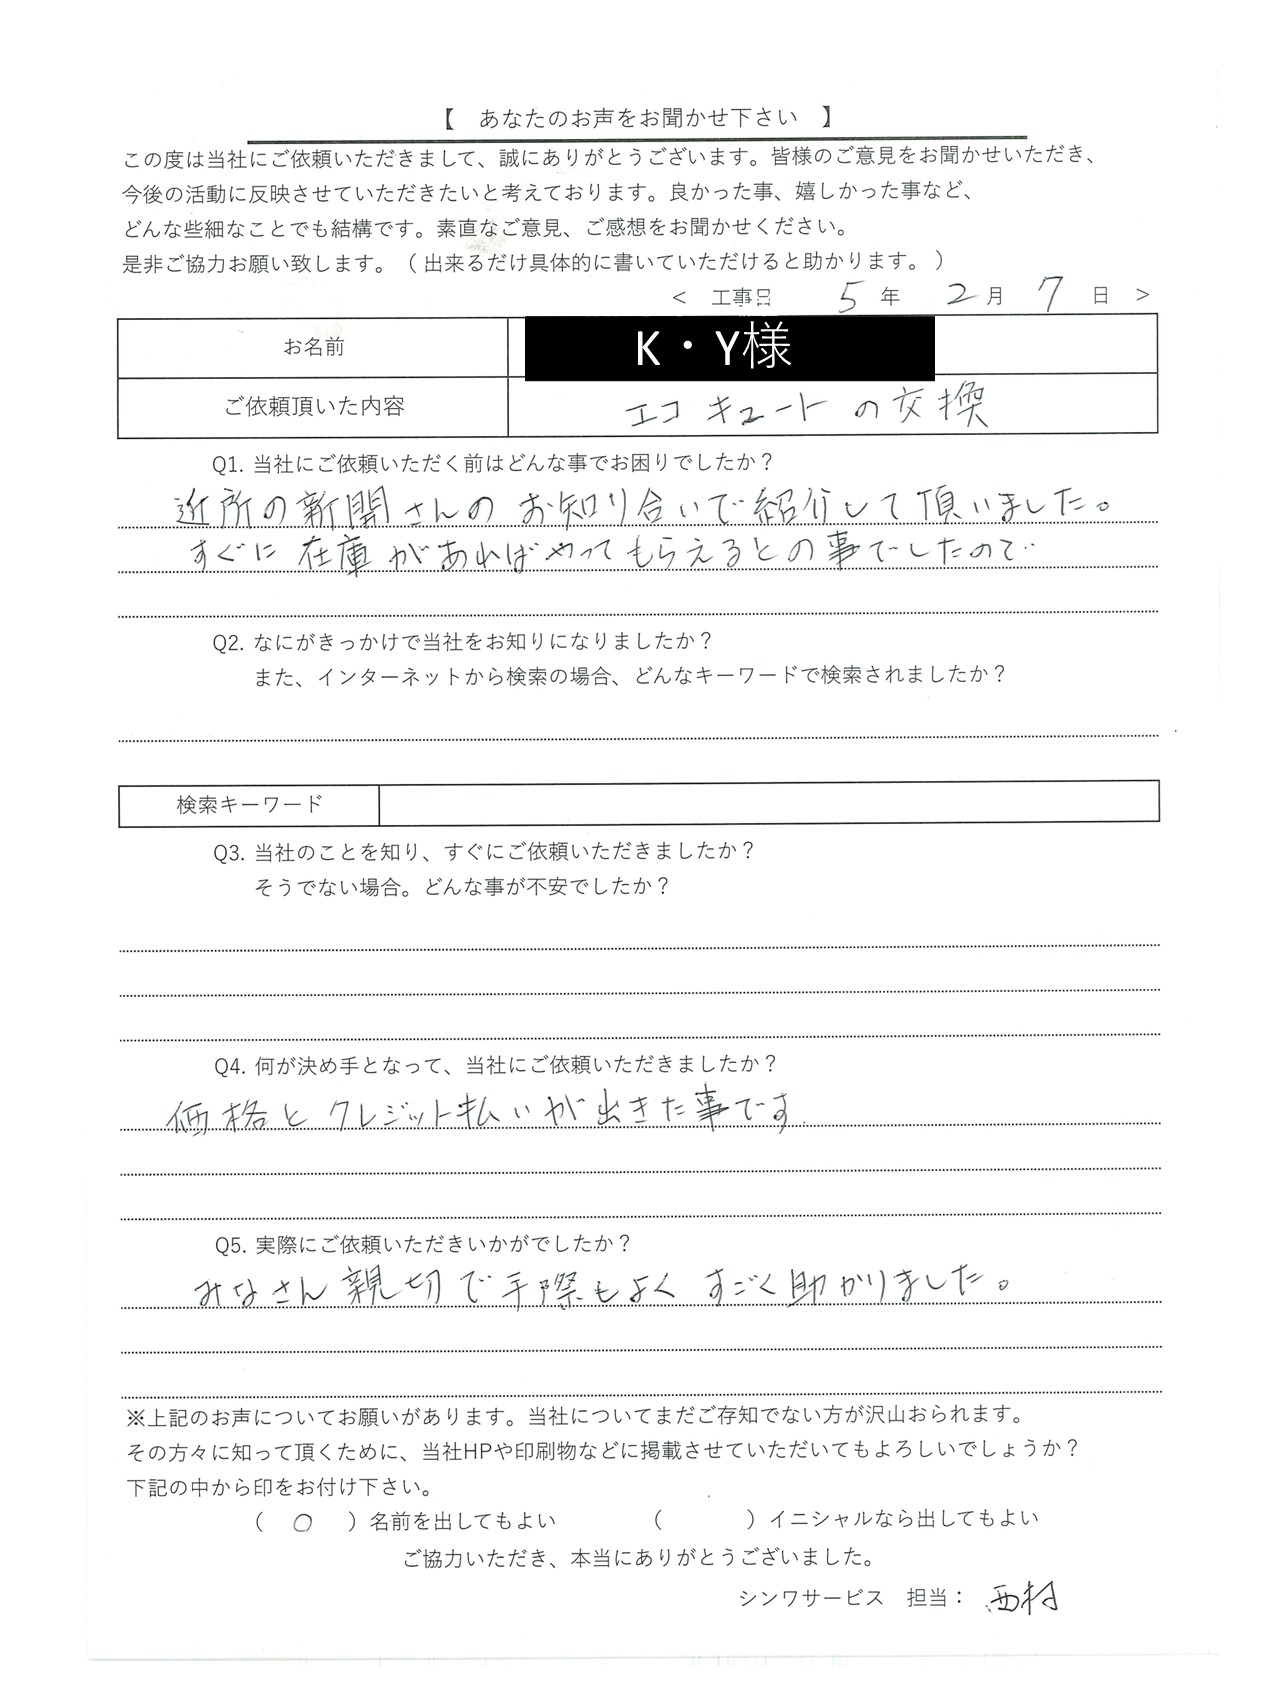 【　あなたのお声をお聞かせ下さい　】
この度は当社にご依頼いただきまして、誠にありがとうございます。皆様のご意見をお聞かせいただき、
今後の活動に反映させていただきたいと考えております。良かった事、嬉しかった事など、
どんな些細なことでも結構です。素直なご意見、ご感想をお聞かせください。
是非ご協力お願い致します。（出来るだけ具体的に書いていただけると助かります。）
＜　工事日　5年　2月　7日　＞
お名前　K・Y様
ご依頼頂いた内容　エコキュートの交換
Q1. 当社にご依頼いただく前はどんな事でお困りでしたか？
近所の新開さんのお知り合いで紹介して頂いました。
すぐに在庫があればやってもらえるとの事でしたので‥
Q2. なにがきっかけで当社をお知りになりましたか？
また、インターネットから検索の場合、どんなキーワードで検索されましたか？
検索キーワード
Q3. 当社のことを知り、すぐにご依頼いただきましたか？
そうでない場合。どんな事が不安でしたか？
Q4. 何が決め手となって、当社にご依頼いただきましたか？
価格とクレジット払いが出きた事です.
Q5. 実際にご依頼いただきいかがでしたか？
みなさん親切で手際もよくすごく助かりました。
※上記のお声についてお願いがあります。当社についてまだご存知でない方が沢山おられます。
その方々に知って頂くために、当社HPや印刷物などに掲載させていただいてもよろしいでしょうか？
下記の中から印をお付け下さい。
（　○　）名前を出してもよい　　（　　　）イニシャルなら出してもよい
ご協力いただき、本当にありがとうございました。
シンワサービス　担当：　西村